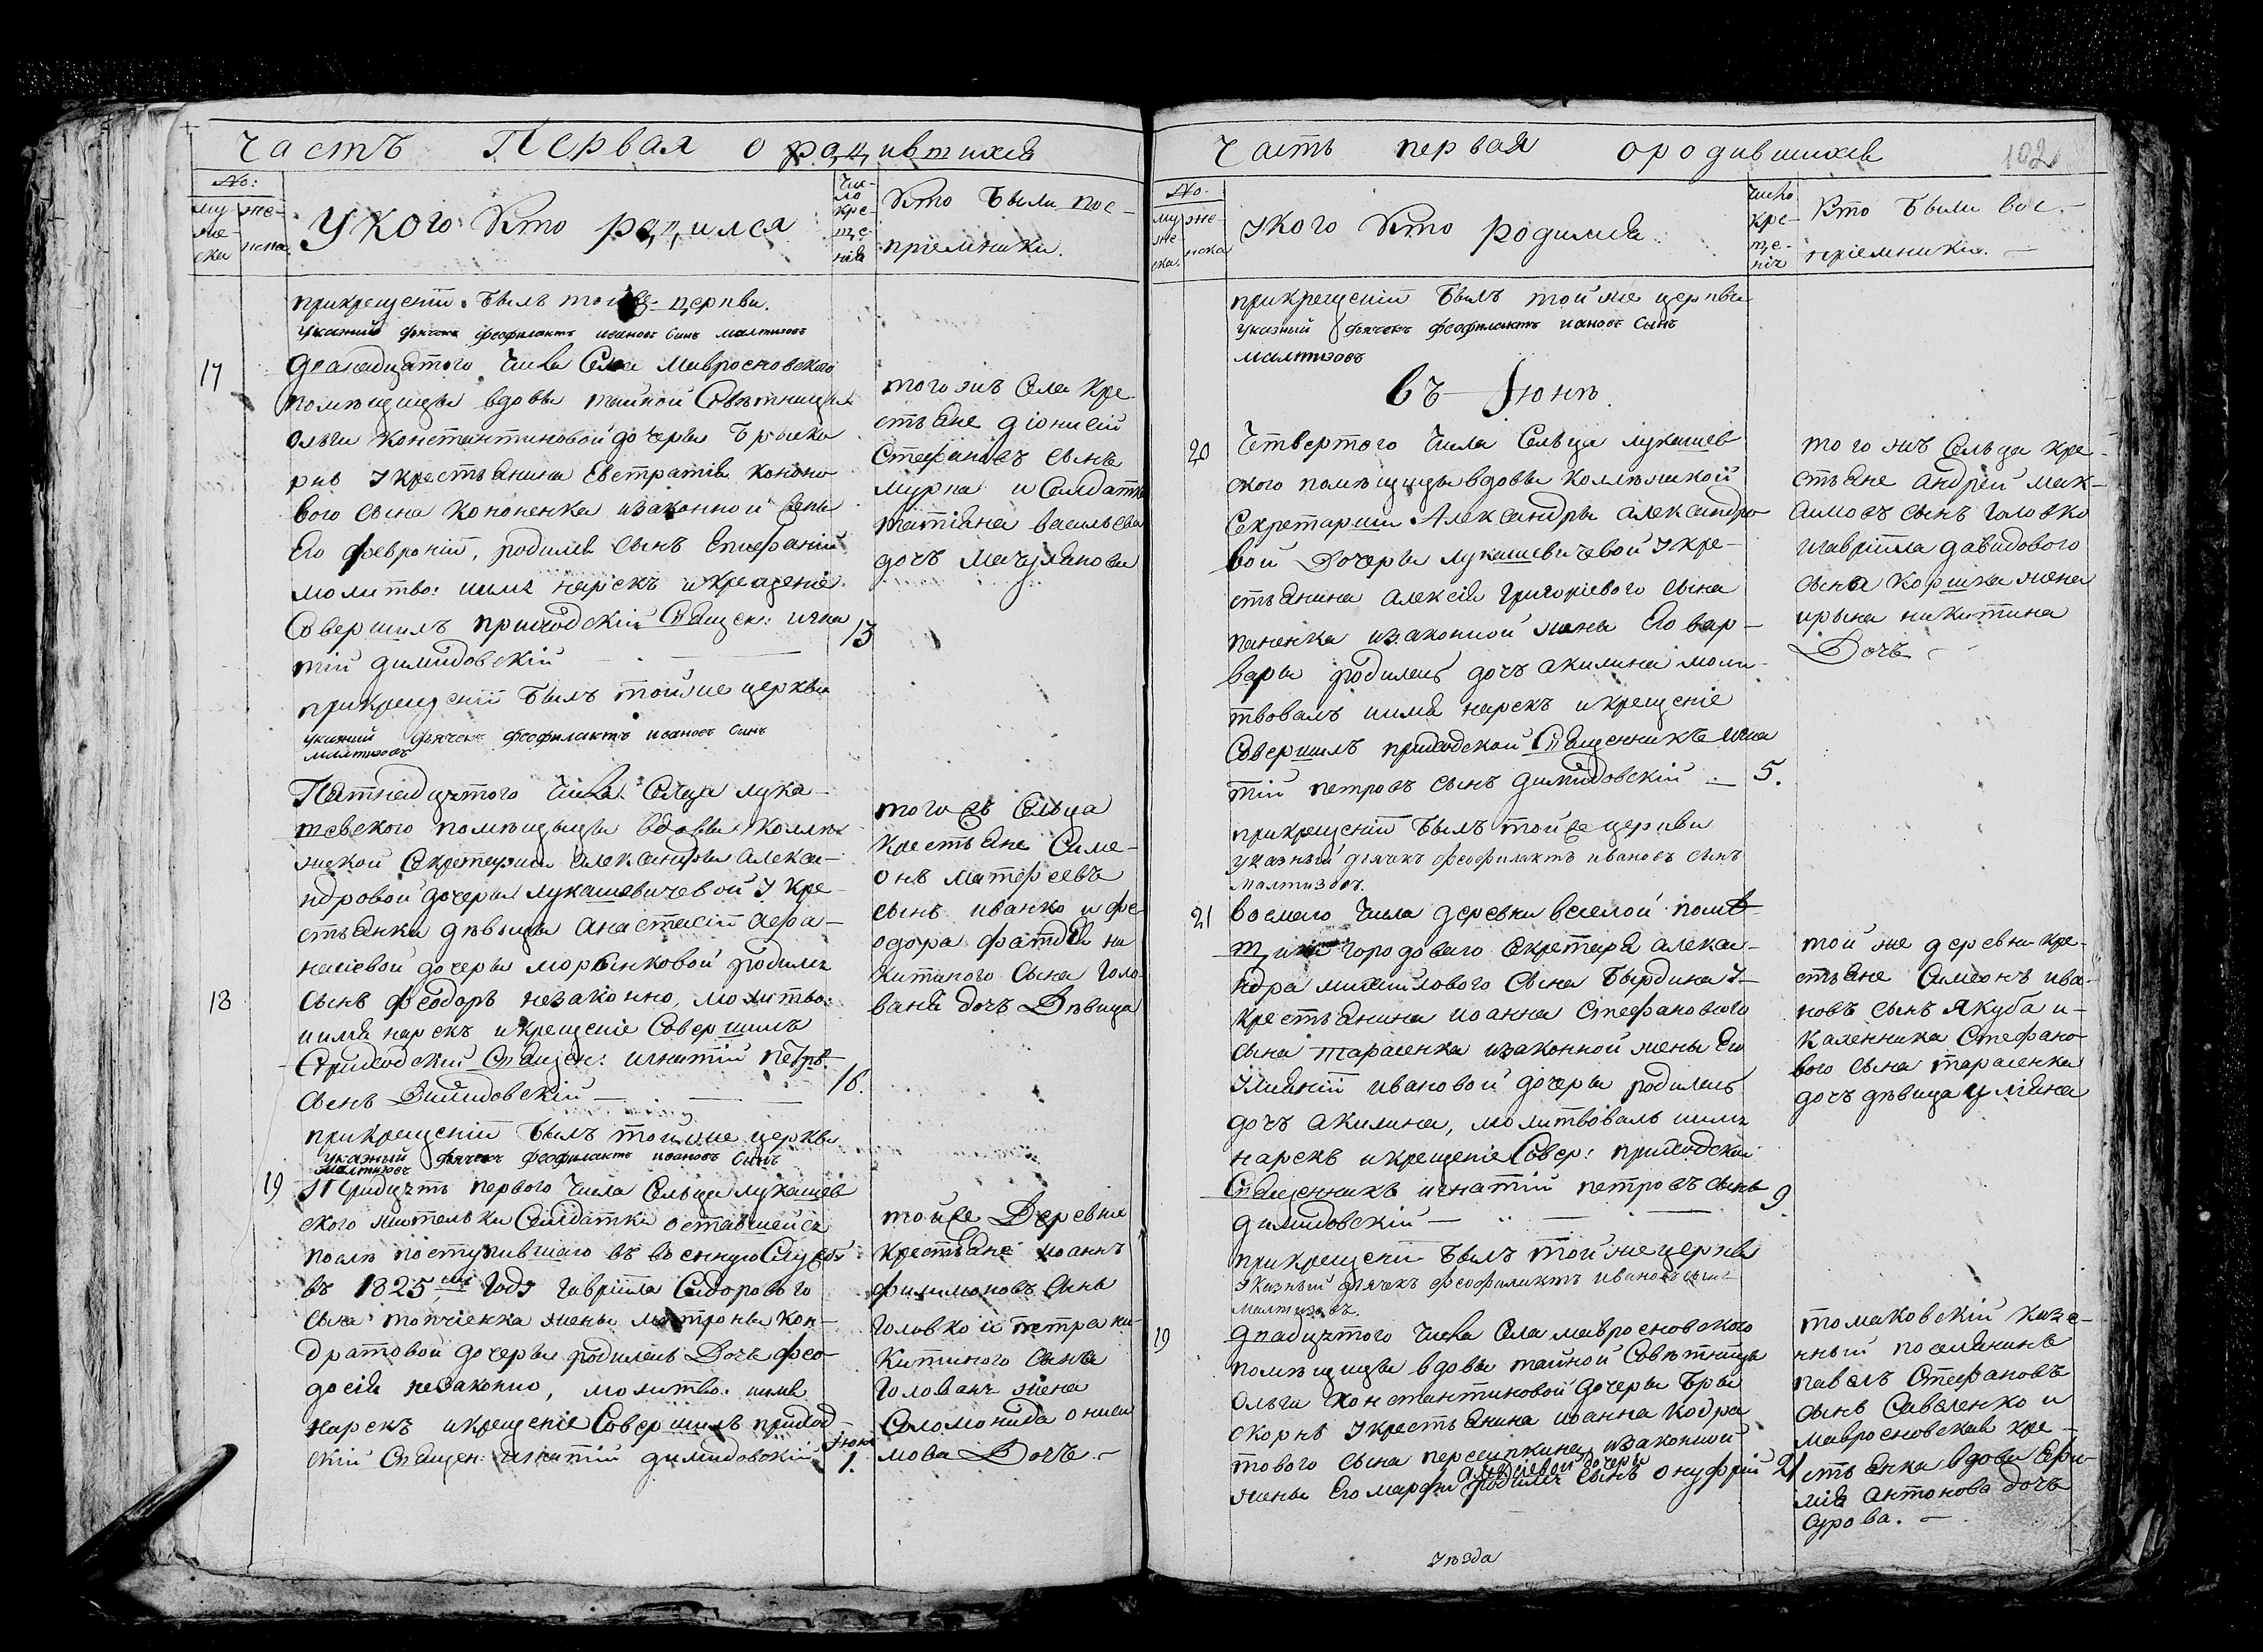 Часть Первая о родившихся
No:
муже-
ска
же-
нска
У кого кто родился
Чис-
ло
кре-
ще-
нія
Кто были вос-
пріемники.
прикрещеніи былъ тойже церкви.
указный дячекъ феофилактъ ивановъ сынъ малтизовъ
17
Дванадцатого числа Села Мавросновского
помѣщицы вдовы тайной Совѣтницы
Ольги Константиновой дочеры Брыско
рнь у крестьянина Евстратія Кононо
вого сына Кононенка изаконной жены
Его февроніи, родился сынъ Епифаній
молитво: иимя нарекъ икрещеніе
Совершилъ приходскій Священ: игна
тій димидовскій
13
того жъ Села Кре-
стьяне діонисій
Стефановъ сынъ
мурна и Салдатка
татіяна васильева
дочъ
прикрещеніи былъ тойже церкви
указный дячекъ феофилактъ ивановъ сынъ
малтизовъ
18
Пятнадцятого числа Сельца лука-
шевского помѣщыцы вдовы коллѣ-
жской Секретарши александры алекса-
ндровой дочеры лукашевичевой у кре-
стьянки дѣвицы анастасіи афа-
насіевой дочеры родился
сынъ феодоръ незаконно, молитво:
иимя нарекъ икрещеніе Совершилъ
Приходскій Священ: игнатій петръ
сынъ Димидовскій
16.
того жъ Сельца
крестьяне Симе-
онъ матфеевъ
сынъ иванко и фе-
одора фатѣя ни
китиного сына голо
ваня дочъ Дѣвица
прикрещеніи былъ тойже церкви
указный дячекъ феофилактъ ивановъ сынъ
малтизовъ
19
Тридцать первого числа Сельца лукашев
ского жительки Салдатки оставшейся
послѣ поступившаго въ военную Службу
въ 1825мъ Году гавріила Сидорового
сына топчіенка жены матроны кон-
дратовой дочеры родилась Дочъ фео-
досія незаконно, молитво: иимя
нарекъ икрещеніе Совершилъ приход-
скій Священ: игнатій димидовскій
Іюня
1.
тойже Деревни
крестьяне иоаннъ
филимоновъ сынъ
головко и петра ни-
китиного сына
голованя жена
Соломонида онисі
мова Дочъ
Часть первая ородившихся
102
No.
муже-
ска.
же-
нска
У кого кто родился
число
кре-
ще-
нія
Кто были вос-
пріемники.
прикрещеніи былъ тойже церкви
указный дячекъ феофилактъ ивановъ сынъ
малтизовъ
въ Іюнѣ
20
Четвертого числа Сельца лукашев
ского помѣщицы вдовы коллѣжской
Секретарши Александры александро-
вой Дочеры лукашевичевой у кре-
стьянина алексія григоріевого сына
паненка изаконной жены Его вар-
вары родилась дочъ акилина моли-
твовалъ иимя нарекъ икрещеніе
Совершилъ приходской Священникъ игна
тій петровъ сынъ димидовскій
5.
того жъ Сельца кре-
стьяне андрей мак-
симовъ сынъ головко
игавріила давидового
сына коржа жена
ирына никитина
Дочъ
прикрещеніи былъ тойже церкви
указный дячекъ феофилактъ ивановъ сынъ
малтизовъ.
21
восмаго числа деревни веселой помѣ-
щика городоваго секретаря алекса-
ндра михайлового сына Бырдина у
крестьянина иоанна Стефанового
сына тарасенка изаконной жены Его
уліяніи ивановой дочеры родилась
дочъ акилина, молитвовалъ иимя
нарекъ икрещеніе Совер: приходской
Священникъ игнатій петровъ сынъ
димидовскій
9.
той же деревни кре-
стьяне Симеонъ ива-
новъ сынъ Якуба и-
каленника Стефано-
вого сына тарасенка
дочъ дѣвица уліяна
прикрещеніи былъ тойже церкви
указный дячекъ феофилактъ ивановъ сынъ
малтизовъ.
19
двадцятого числа Села мавросновского
помѣщицы вдовы тайной Совѣтницы
Ольги константиновой дочеры Бры
скорнь у крестьянина иоанна кодра
тового сына пересыпкина изаконной
алексіевой дочеры
жены Его марфы родился сынъ онуфрій
21
томаковскій казе-
нный поселянинъ
павелъ Стефановъ
сынъ Саваленко и
мавросновская кре-
стьянка вдова Ефи-
мія антонова дочъ
сурова.
уѣзда